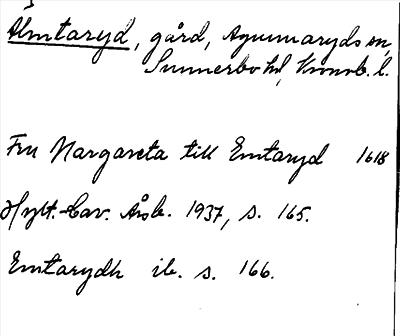 Älmtaryd, gård, Agunnaryds sn,
Sunnerbo hd, Kronob. l.
Fru Margareta till Emtaryd 1618
Hylt.-Cav. Årsb. 1937, s. 165.
Emtarydh ib. s. 166.